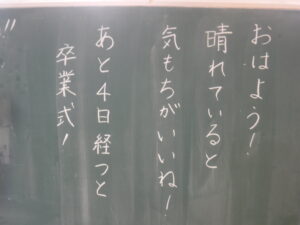 おはよう!
晴れていると
気もちがいいね!
あと4日経つと
卒業式!